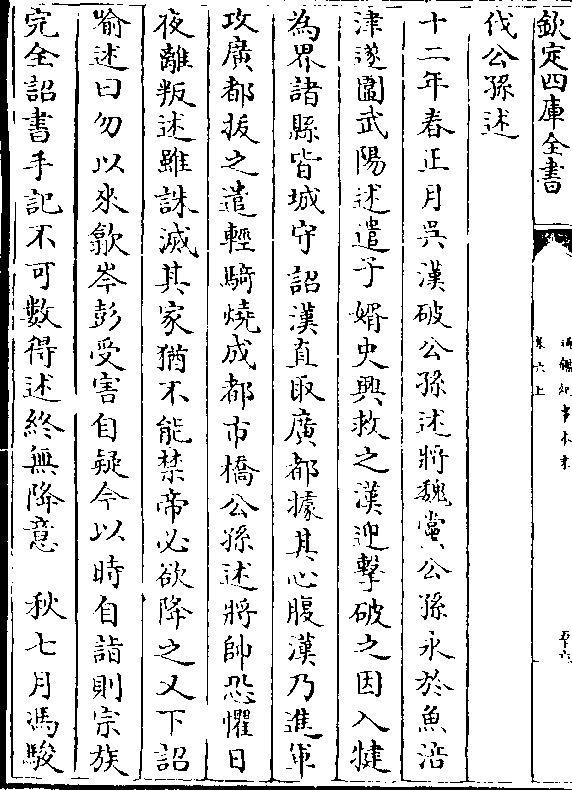 欽定四庫全書
通鑑紀事本末
卷六上
伐公孫述
十二年春正月吳漢破公孫述將魏黨公孫永於魚涪
津遂圍武陽述遣子婿史興救之漢迎擊破之因入犍
為界諸縣皆城守詔漢直取廣都據其心腹漢乃進軍
攻廣都拔之遣輕騎燒成都市橋公孫述將帥恐懼日
夜離叛述雖誅滅其家猶不能禁帝必欲降之又下詔
喻述曰勿以來歙岑彭受害自疑今以時自詣則宗族
完全詔書手記不可數得述終無降意　秋七月馮駿